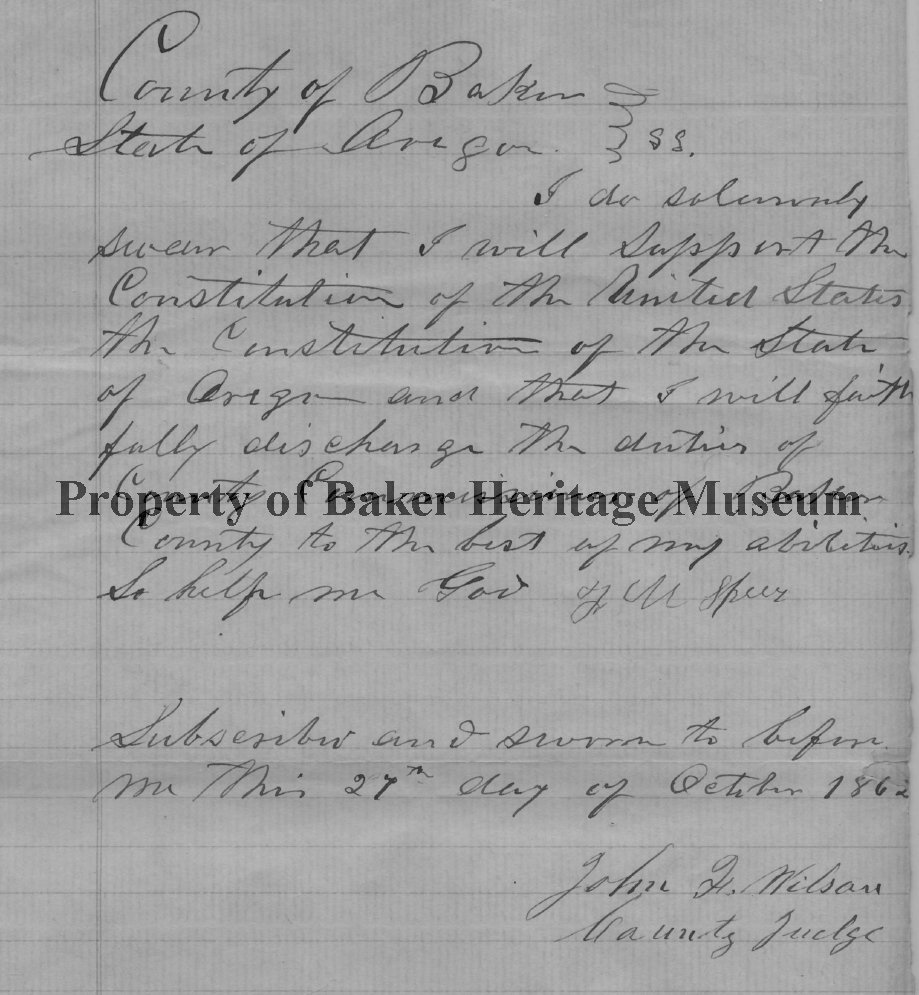 County of Baker
State of Oregon. } ss.
I do solemnly
swear that I will support the
Constitution of the United States
the Constitution of the State
of Oregon and that I will faith
fully discharge the duties of
County Commissioner of Baker
Property of Baker Heritage Museum
County to the best of my abilities.
So help me God F M Speer
Subscribed and sworn to before
me this 27th day of October 1862
John F. Wilson
County Judge